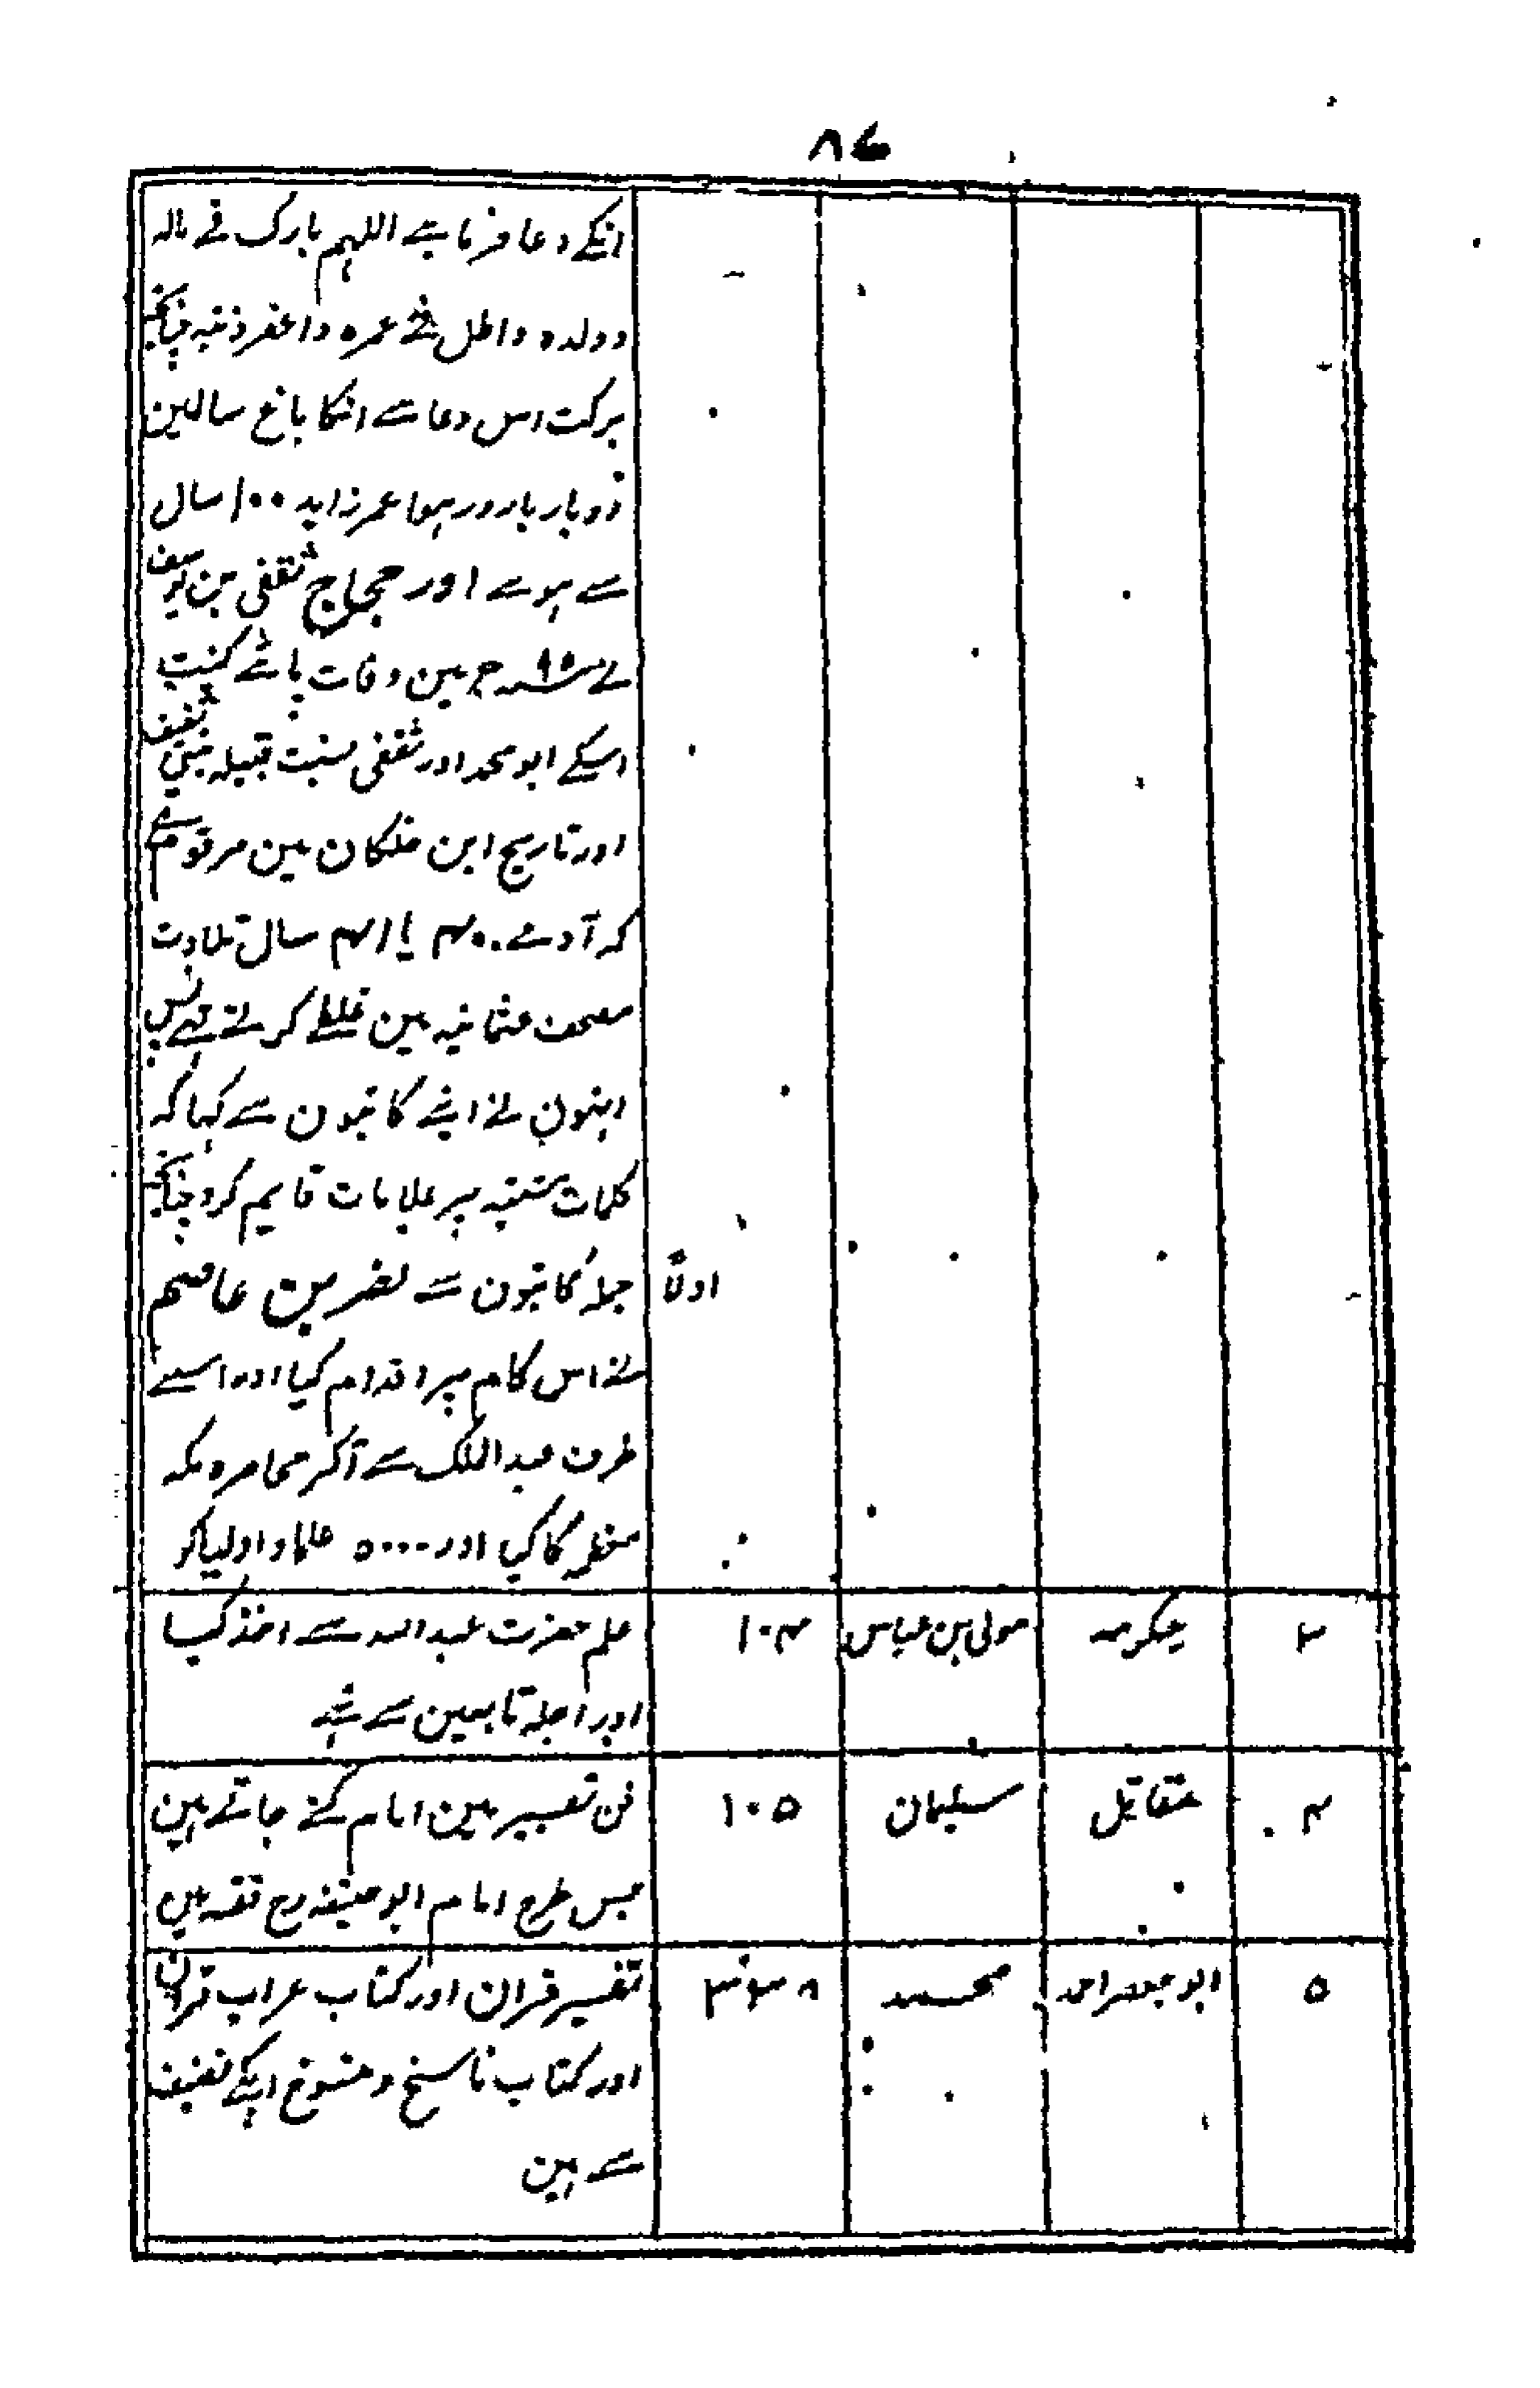 ۸۶
انکے دعا فرمائے اللہم بارک فے مالہ
وولدہ واطل فے عمرہ واغفر ذنبہ چنانچہ
برکت اس دعا سے انکا باغ سالمین
دوبار بارور ہوا عمر زاید ۱۰۰ سال
سے ہوے اور حجاج ثقفی بن یوسف
نے ۹۵ سنہ ھ مین وفات پائے کنیت
اسکے ابو محمد اور ثقفی نسبت قبیلہ بنی ثقیف
اور تاریخ ابن خلکان مین مرقوم ہے
کہ آدمے ۴۰ یا ۴۱ سال تلاوت
مصحف عثمانیہ مین غلطے کرتے تہے پس
انہون نے اپنے کاتبون سے کہا کہ
کلمات مشتبہ پر علامات قایم کرو چنانچہ
اولاً جملہ کاتبون سے نضر بن عاصم
نے اس کام پر اقدام کیا اور اسنے
طرف عبد الملک سے آکر محاصرہ مکہ
معظمہ کا کیا اور ۵۰۰۰۰ علما و اولیا کو
۳ عکرمہ مولی بن عباس ۱۰۴ علم حضرت عبد اللہ سے اخذ کیا
اور اجلہ تابعین سے تہے
۴ مقاتل سلیمان ۱۰۵ فن تفسیر مین امام گنے جاتے ہین
جس طرح امام ابو حنیفہ رح فقہ مین
۵ ابو جعفر احمد محمد ۳۳۸ تفسیر قران اور کتاب عراب قران
اور کتاب ناسخ و منسوخ انکے تصنیف
سے ہین